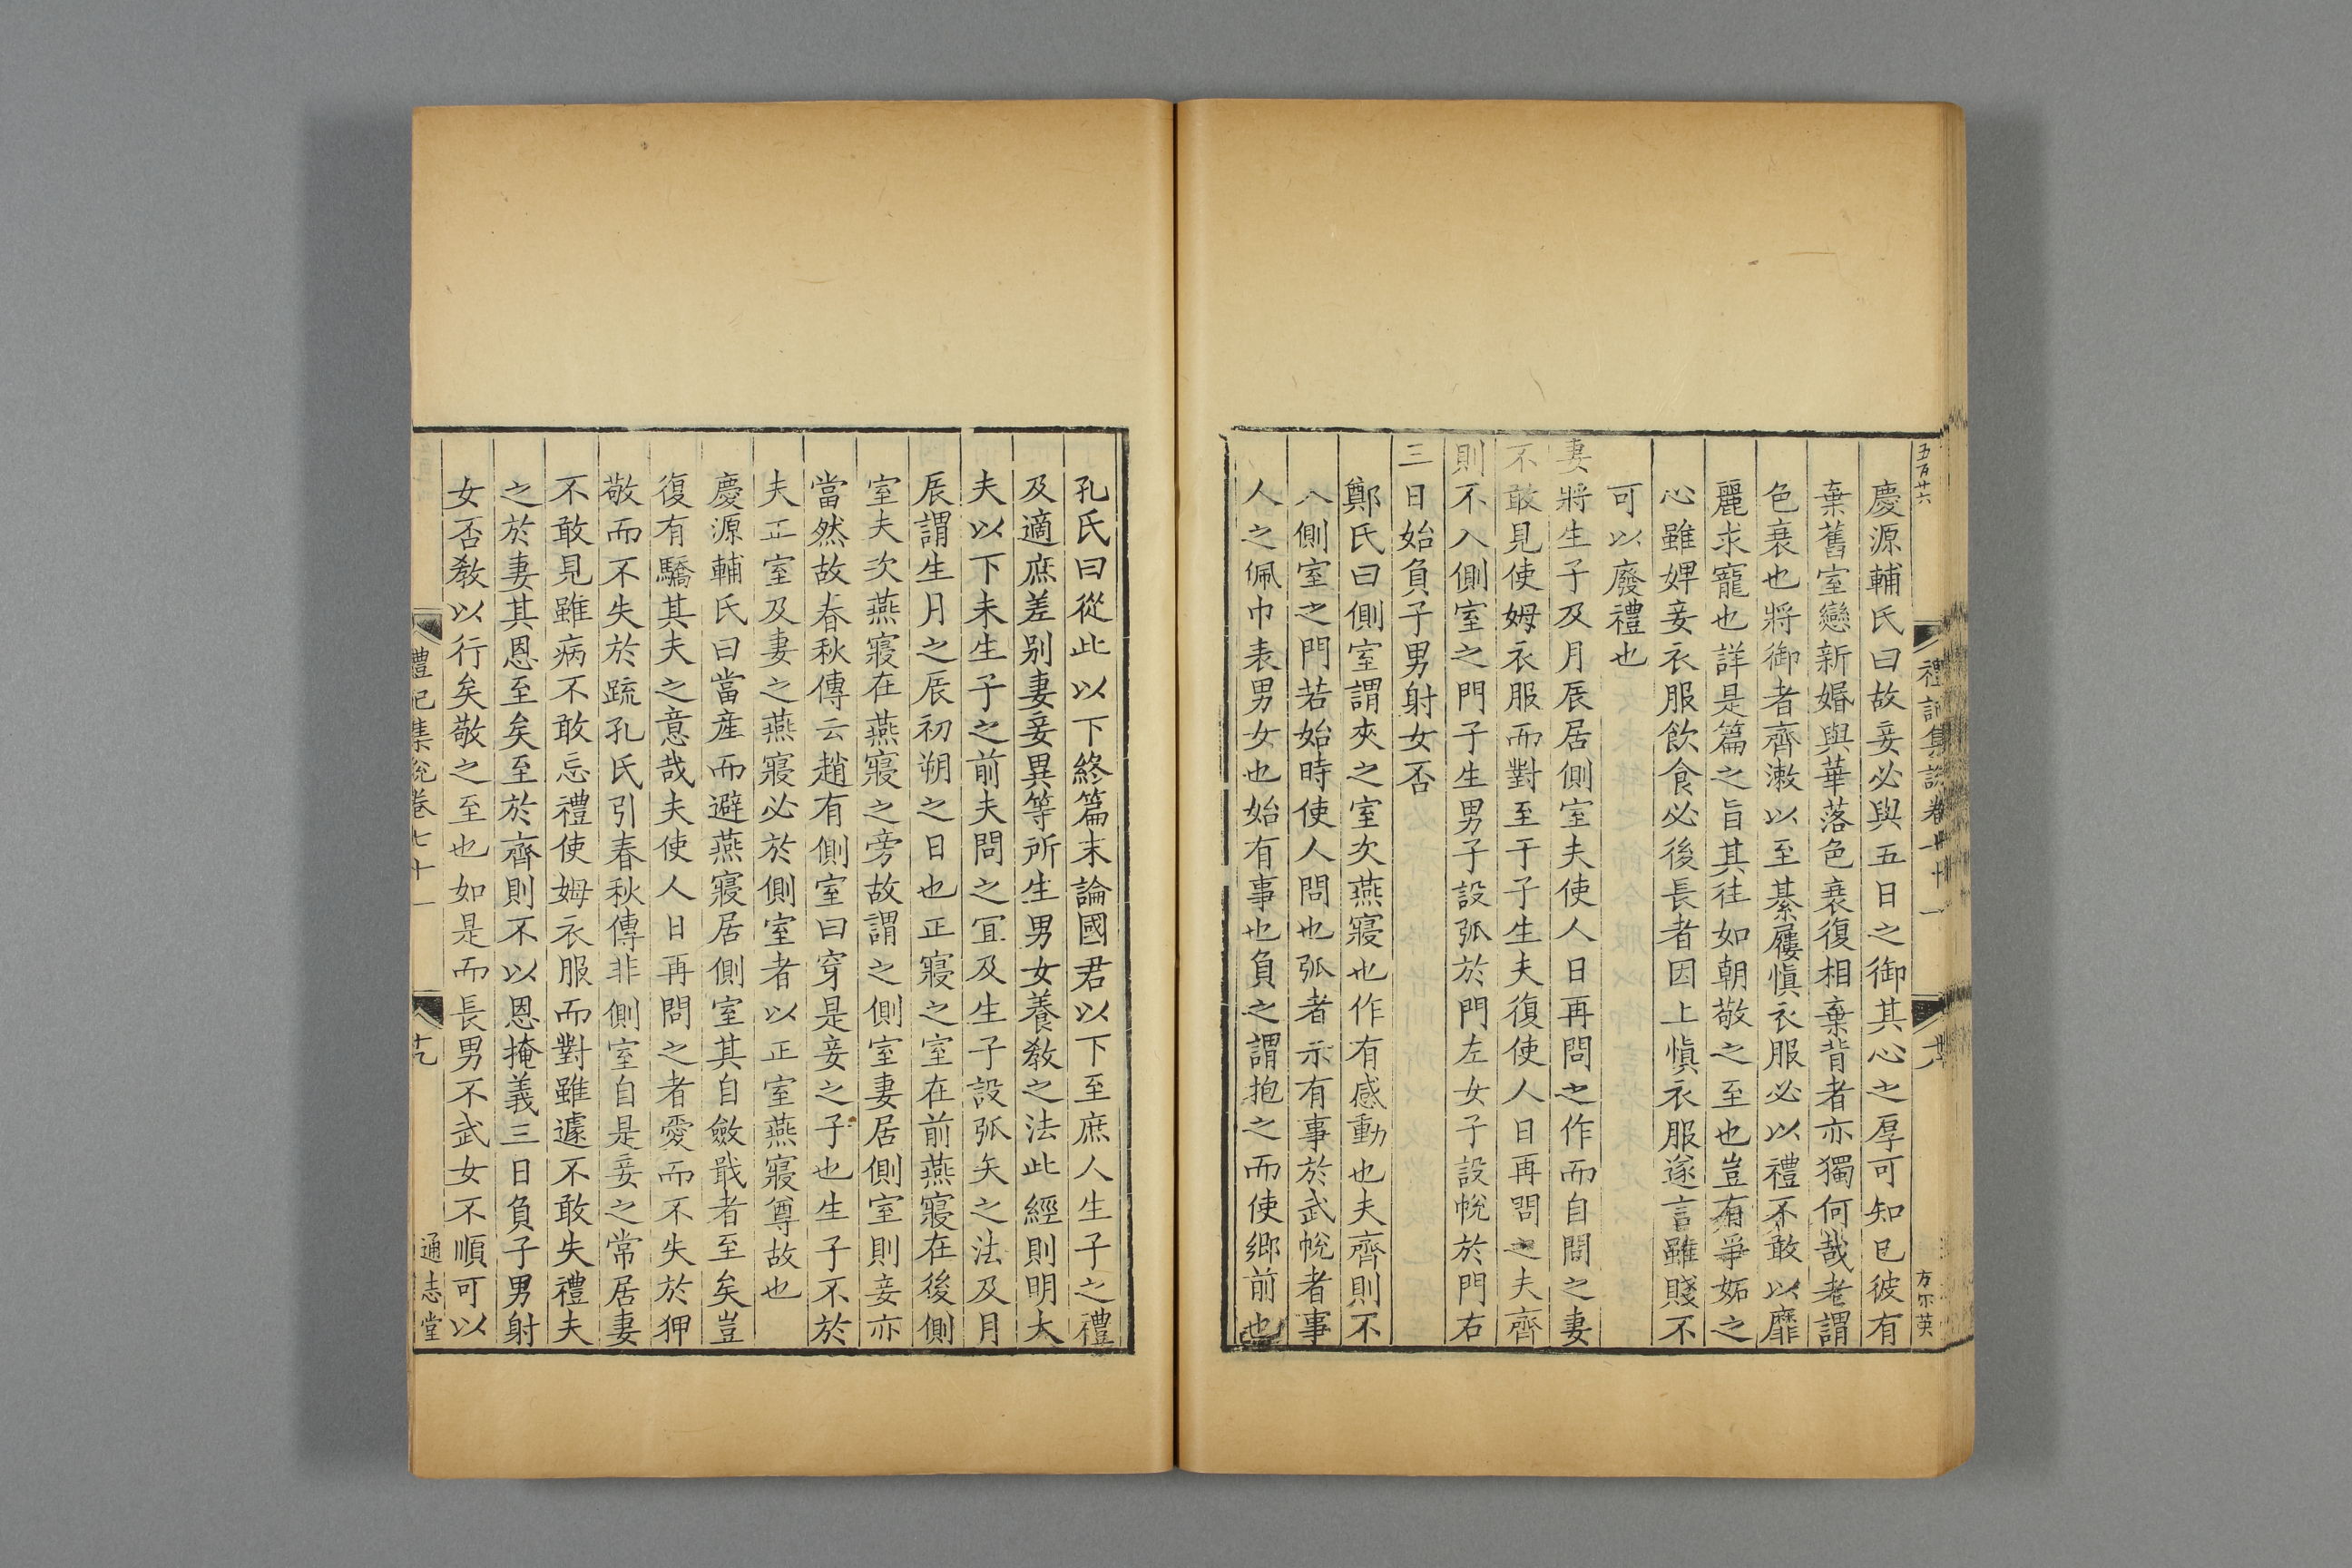 五百廿六
禮記集說卷七十一
方尔英
慶源輔氏曰故妾必與五日之御其心之厚可知已彼有
棄舊室戀新婚與華落色衰復相棄背者亦獨何哉老謂
色衰也將御者齊漱以至綦屨愼衣服必以禮不敢以靡
麗求寵也詳是篇之旨其往如朝敬之至也豈有爭妬之
心雖婢妾衣服飲食必後長者因上愼衣服遂言雖賤不
可以廢禮也
妻將生子及月辰居側室夫使人日再問之作而自問之妻
不敢見使姆衣服而對至于子生夫復使人日再問之夫齊
則不入側室之門子生男子設弧於門左女子設帨於門右
三日始負子男射女否
鄭氏曰側室謂夾之室次燕寢也作有感動也夫齊則不
入側室之門若始時使人問也弧者示有事於武帨者事
人之佩巾表男女也始有事也負之謂抱之而使鄉前也
孔氏曰從此以下終篇末論國君以下至庶人生子之禮
及適庶差别妻妾異等所生男女養敎之法此經則明大
夫以下未生子之前夫問之宜及生子設弧矢之法及月
辰謂生月之辰初朔之日也正寢之室在前燕寢在後側
室夫次燕寢在燕寢之旁故謂之側室妻居側室則妾亦
當然故春秋傳云趙有側室曰穿是妾之子也生子不於
夫正室及妻之燕寢必於側室者以正室燕寢尊故也
慶源輔氏曰當產而避燕寢居側室其自斂戢者至矣豈
復有驕其夫之意哉夫使人日再問之者愛而不失於狎
敬而不失於疏孔氏引春秋傳非側室自是妾之常居妻
不敢見雖病不敢忘禮使姆衣服而對雖遽不敢失禮夫
之於妻其恩至矣至於齊則不以恩掩義三日負子男射
女否敎以行矣敬之至也如是而長男不武女不順可以
禮記集說卷七十一
十九
通志堂